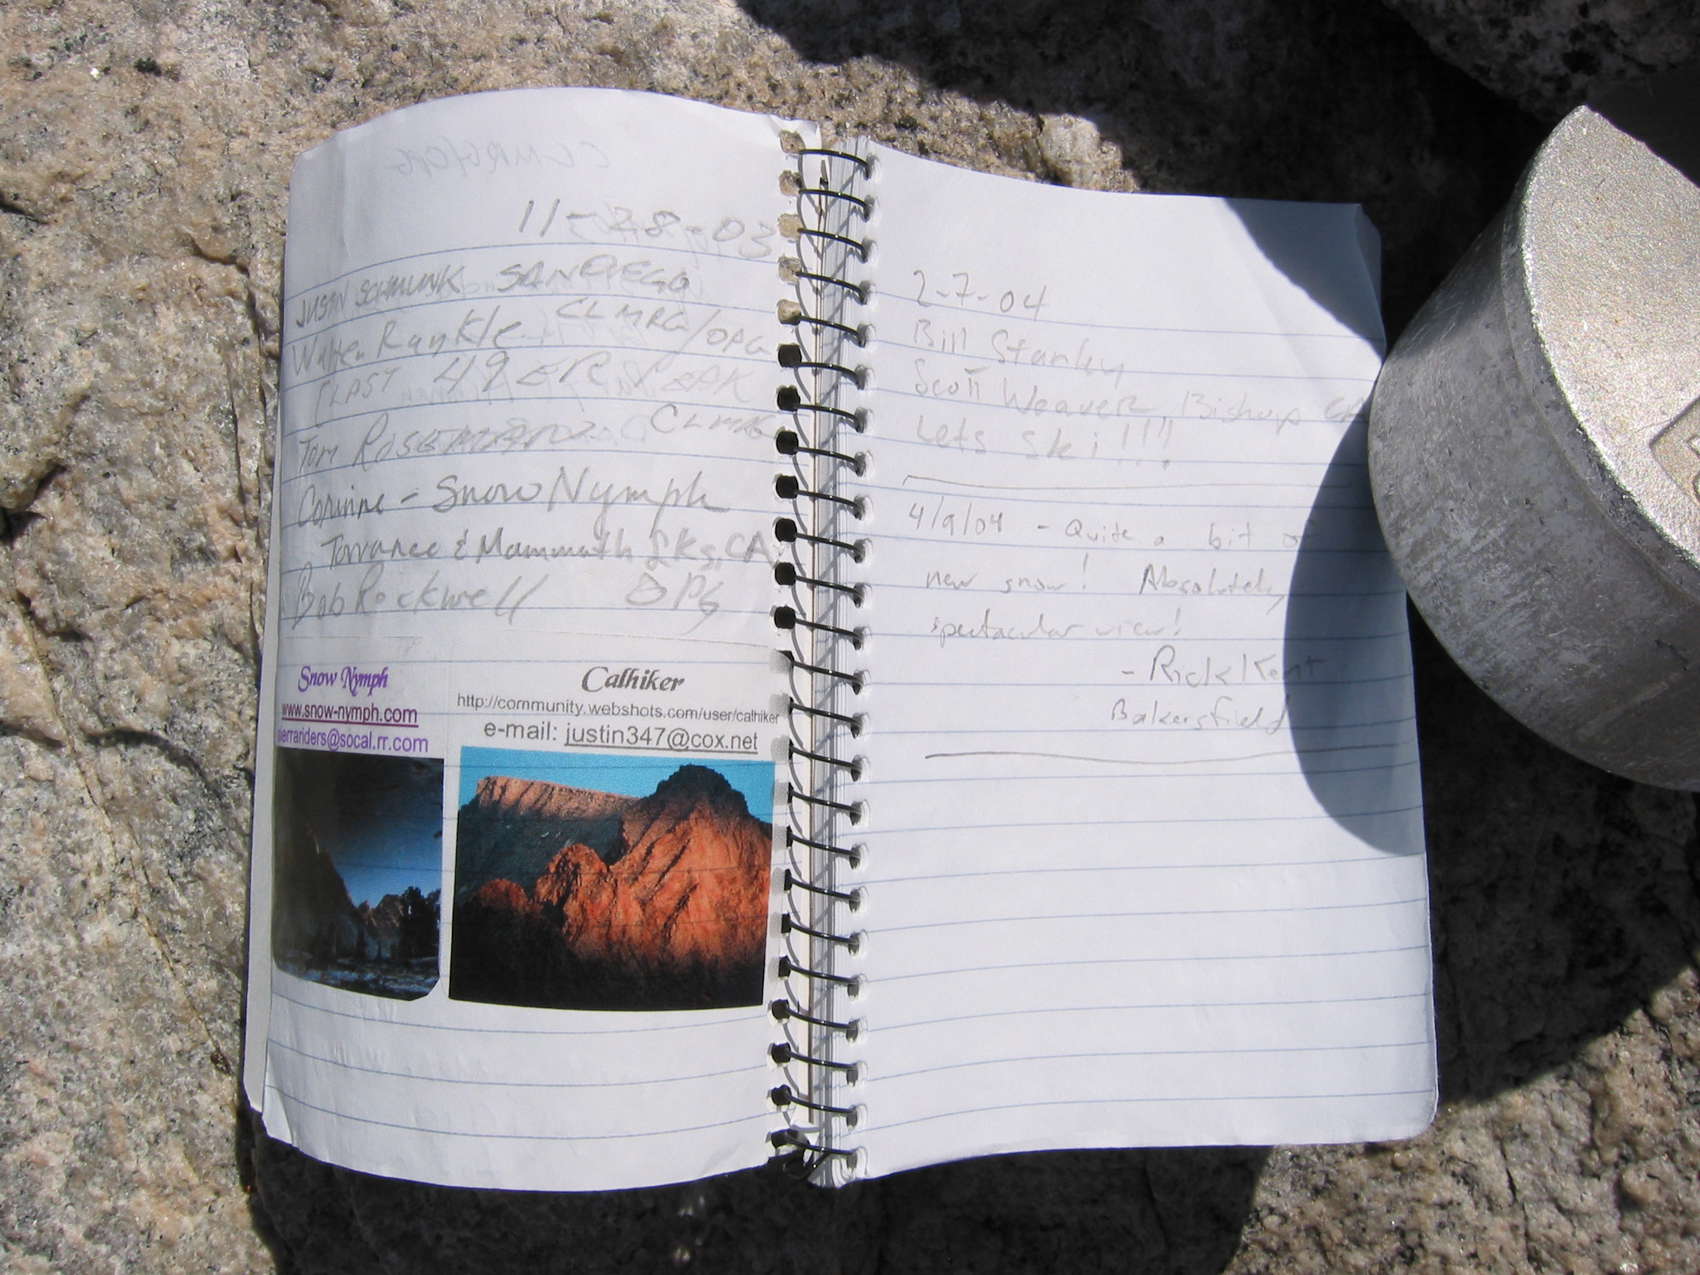 11-28-03
JUSTIN SCHMUNK SAN DIEGO
Walter Runkle CLMRG/OPG
49ER PEAK
Tom ROSEMAN CLMRG
Corinne - Snow Nymph
Torrance & Mammoth Lks, CA
Bob Rockwell OPG
Snow Nymph
www.snow-nymph.com
sierrariders@socal.rr.com
Calhiker
http://community.webshots.com/user/calhiker
e-mail: justin347@cox.net
2-7-04
Bill Stanley
Scott Weaver, Bishop CA
Lets ski!!!
4/9/04 - Quite a bit of
new snow! Absolutely
spectacular view!
- Rick Kent
Bakersfield